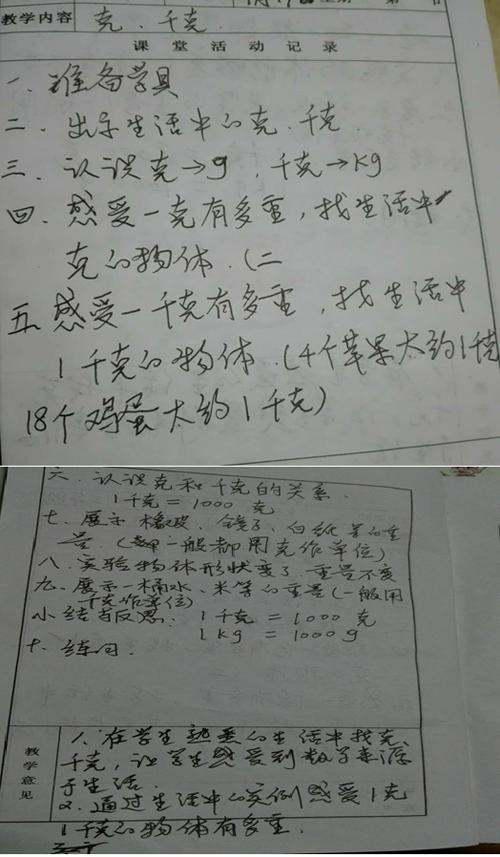 教学内容 克、千克
课堂活动记录
一、准备学具
二、出示生活中的克、千克
三、认识克→g，千克→kg
四、感受一克有多重，找生活中
克的物体.（二
五、感受一千克有多重，找生活中
1千克的物体.（4个苹果大约1千克
18个鸡蛋大约1千克）
六、认识克和千克的关系.
1千克=1000克
七、展示橡皮、镜子、白纸等的重
量.（一般都用克作单位）
八、实验物体形状变了，重量不变
九、展示一桶水、米等的重量（一般用
千克作单位）
小结与反思：1千克=1000克
1kg=1000g
十、练习.
教学意见
1、在学生熟悉的生活中找克、
千克，让学生感受到数学来源
于生活.
2.通过生活中的实例感受1克
1千克的物体有多重.